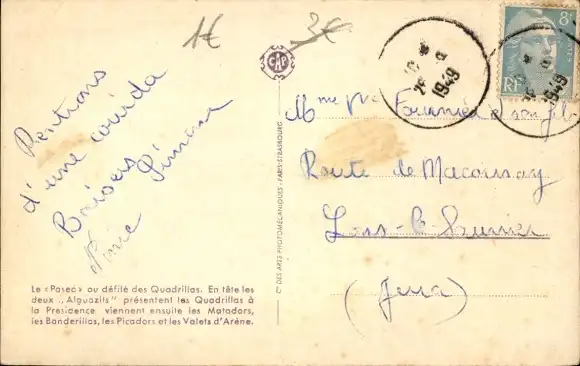 1€
3€
CAP
8F
RF
1949
1949
Rentrons
d'une corrida
Baisers
Mme Vve Fournier et son fils
Route de Macornay
Lons-le-Saunier
(Jura)
Cie DES ARTS PHOTOMÉCANIQUES - PARIS-STRASBOURG
Le «Paseo» ou défilé des Quadrillas. En tête les
deux „Alguazils" présentent les Quadrillas à
la Présidence viennent ensuite les Matadors,
les Banderillas, les Picadors et les Valets d'Arène.